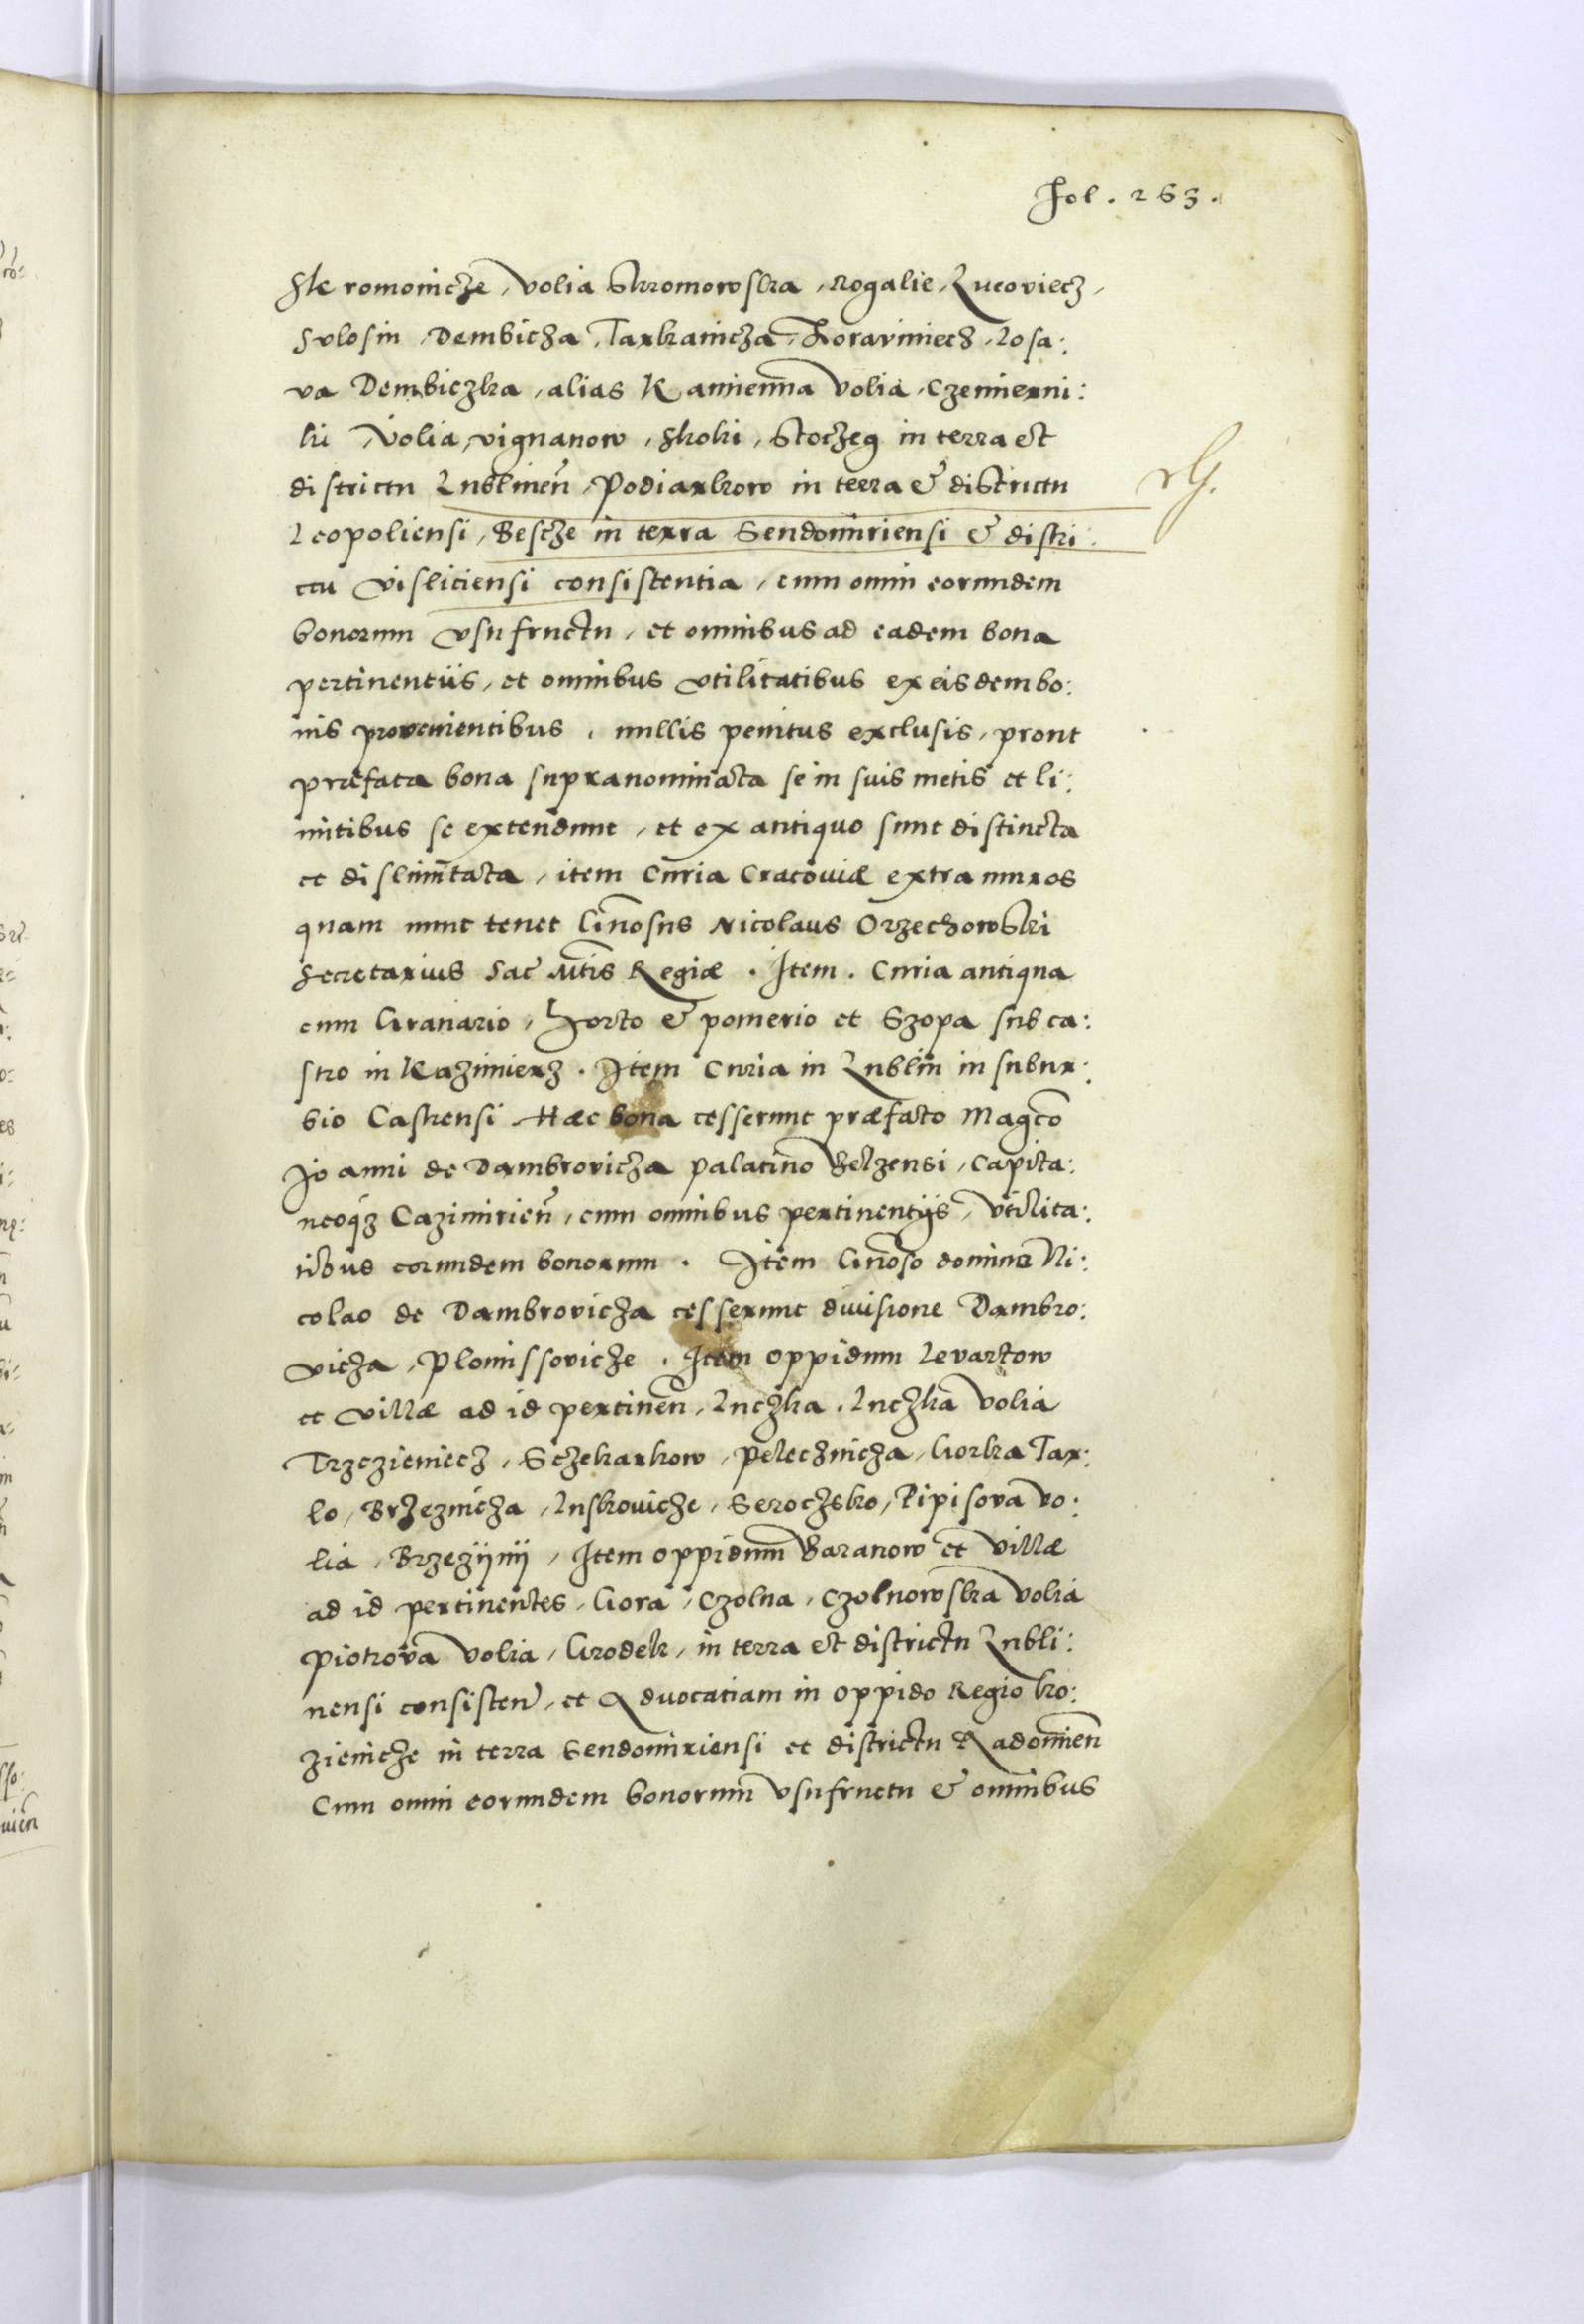 Fol. 263.
Skromonicze, Volia Skromowska, Rogalie, Lucoviecz,
Sulosin, Dembicza, Tarkanicza, Zoraviniecz, Losa:
va Dembiczka, alias Kamienna Volia, Czemierni:
ki, Volia, vignanow, Skoki, Stoczeg in terra et
districtu Lublinen̄, Podiarkow in terra & districtu
Leopoliensi, Bescze in terra Sendomiriensi & distri:
ctu Visliciensi consistentia, cum omni eorundem
bonorum vsufructu, et omnibus ad eadem bona
pertinentiis, et omnibus vtilitatibus ex eisdem bo:
nis provenientibus, nullis penitus exclusis, prout
præfata bona supranominata se in suis metis et li:
mitibus se extendunt, et ex antiquo sunt distincta
et dislimitata, item Curia Cracoviæ extra muros
quam nunc tenet Gn̄osus Nicolaus Orzechowski
Secretarius Sac M̄tis Regiæ. Item. Curia antiqua
cum Granario, Horto & pomerio et Szopa sub ca:
stro in Kazimierz. Item Curia in Lublin in subur:
bio Castrensi Hæc bona cesserunt præfato Magc̄o
Joanni de Dambrovicza palatino Belzensi, Capita:
neoq3 Cazimirien̄, cum omnibus pertinentijs, vtilita:
tibus eorundem bonorum. Item Gn̄oso domino Ni:
colao de Dambrovicza cesserunt divisione Dambro:
vicza, Plomissovicze. Item oppidum Levartow
et villæ ad id pertinen̄, Luczka, Luczka Volia
Trzczieniecz, Sczekarkow, Pelecznicza, Gorka Tar:
lo, Brzeznicza, Luskovicze, Seroczsko, Pipisova vo:
lia, Brzezijnij, Item oppidum Baranow et villæ
ad id pertinentes, Gora, Czolna, Czolnowska Volia
Piotrova Volia, Grodek, in terra et districtu Lubli:
nensi consisten̄, et Advocatiam in oppido Regio Ko:
zienicze in terra Sendomiriensi et districtu Radomien̄
Cum omni eorundem bonorum vsufructu & omnibus